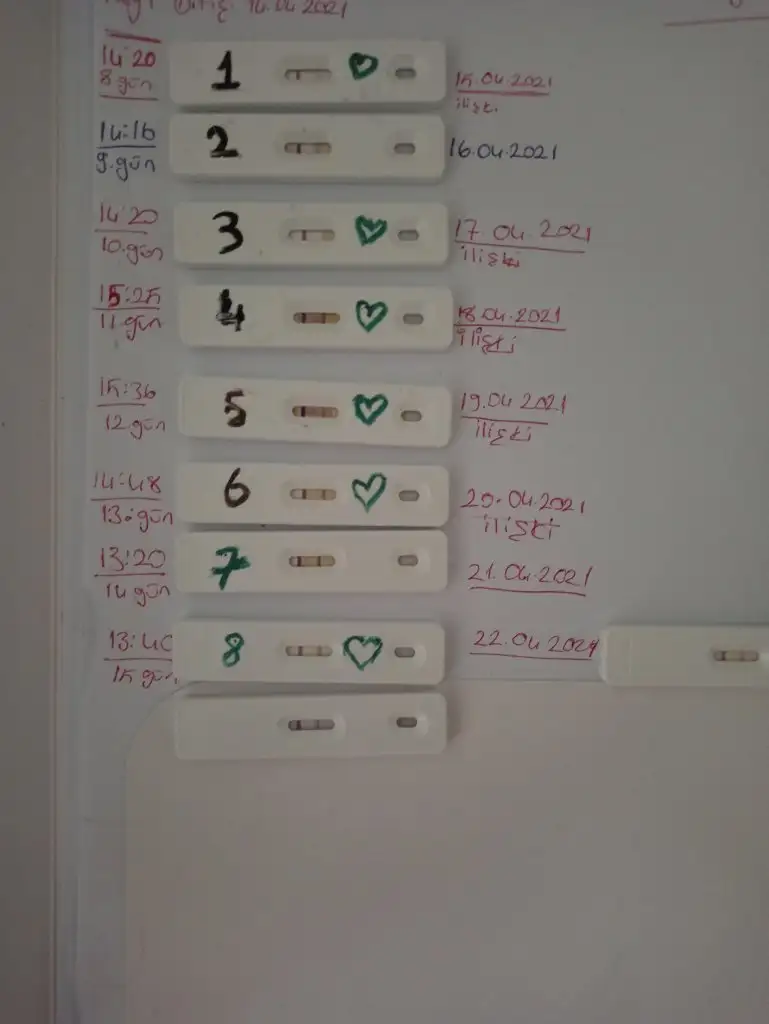 14.04.2021
14:20 1 15.04.2021
8.gün ilişki
14:16 2 16.04.2021
9.gün
14:20 3 17.04.2021
10.gün ilişki
15:25 4 18.04.2021
11.gün ilişki
15:36 5 19.04.2021
12.gün ilişki
14:48 6 20.04.2021
13.gün ilişki
13:20 7 21.04.2021
14 gün
13:40 8 22.04.2021
15 gün